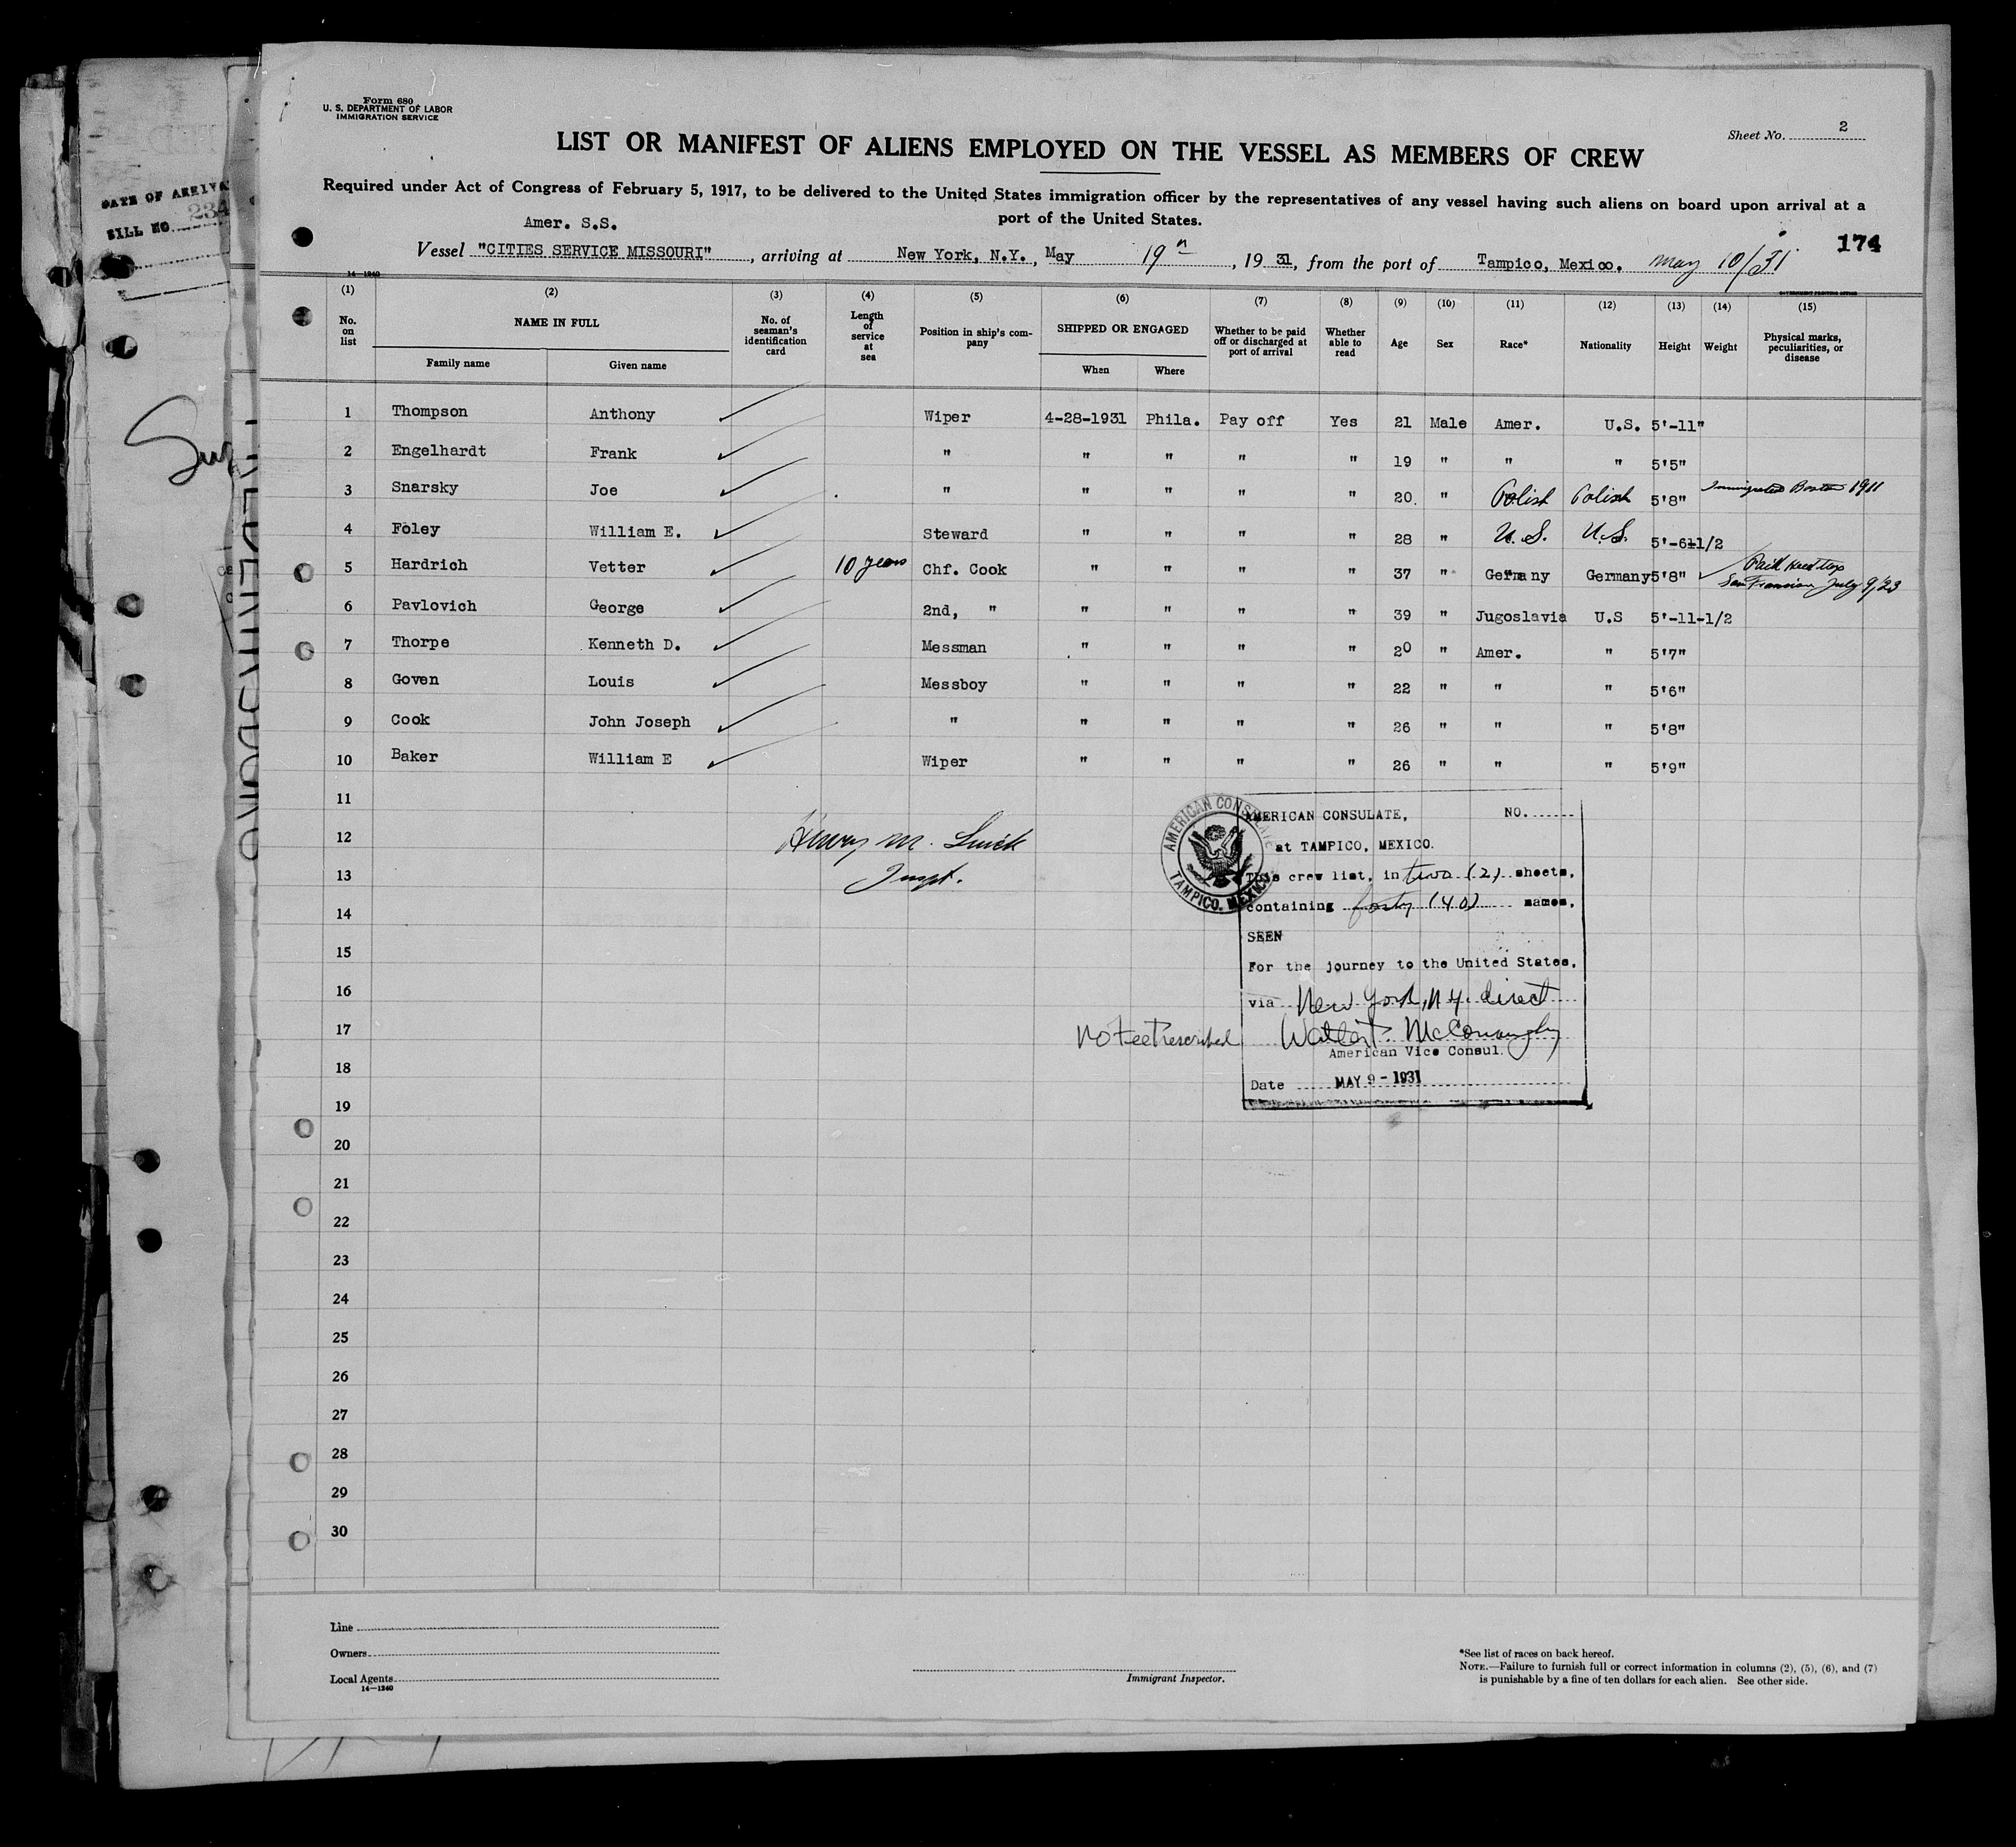 Form 680
U. S. DEPARTMENT OF LABOR
IMMIGRATION SERVICE
Sheet No. 2
LIST OR MANIFEST OF ALIENS EMPLOYED ON THE VESSEL AS MEMBERS OF CREW
Required under Act of Congress of February 5, 1917, to be delivered to the United States immigration officer by the representatives of any vessel having such aliens on board upon arrival at a
port of the United States.
DATE OF ARRIVA
BILL NO. 234
Amer. S.S.
174
Vessel "CITIES SERVICE MISSOURI", arriving at New York, N.Y., May 19, 1931, from the port of Tampico, Mexico. May 10/31
14-1240
GOVERNMENT PRINTING OFFICE
(1) (2) (3) (4) (5) (6) (7) (8) (9) (10) (11) (12) (13) (14) (15)
No. on list NAME IN FULL No. of seaman's identification card Length of service at sea Position in ship's company SHIPPED OR ENGAGED Whether to be paid off or discharged at port of arrival Whether able to read Age Sex Race* Nationality Height Weight Physical marks, peculiarities, or disease
Family name Given name When Where
1 Thompson Anthony Wiper 4-28-1931 Phila. Pay off Yes 21 Male Amer. U.S. 5'-11"
2 Engelhardt Frank " " " " " 19 " " " 5'5"
3 Snarsky Joe " " " " " 20. " Polish Polish 5'8" Immigrated Boston 1911
4 Foley William E. Steward " " " " 28 " U.S. U.S. 5'-6-1/2
5 Hardrich Vetter 10 years Chf. Cook " " " " 37 " Germany Germany 5'8" Paid head tax
San Francisco July 9/23
6 Pavlovich George 2nd, " " " " " 39 " Jugoslavia U.S 5'-11-1/2
7 Thorpe Kenneth D. Messman " " " " 20 " Amer. " 5'7"
8 Goven Louis Messboy " " " " 22 " " " 5'6"
9 Cook John Joseph " " " " " 26 " " " 5'8"
10 Baker William E Wiper " " " " 26 " " " 5'9"
11
12
13
14
15
16
17
18
19
20
21
22
23
24
25
26
27
28
29
30
Henry M.
Inspt.
AMERICAN CONSULATE
TAMPICO, MEXICO
AMERICAN CONSULATE, NO.
at TAMPICO, MEXICO.
This crew list, in two (2) sheets,
containing forty (40) names,
SEEN
For the journey to the United States,
via New York, N.Y. direct
No Fee Prescribed
Walter P. McConaughy
American Vice Consul.
Date MAY 9 - 1931
Line
Owners
Local Agents
14-1240
Immigrant Inspector.
*See list of races on back hereof.
NOTE.—Failure to furnish full or correct information in columns (2), (5), (6), and (7)
is punishable by a fine of ten dollars for each alien. See other side.